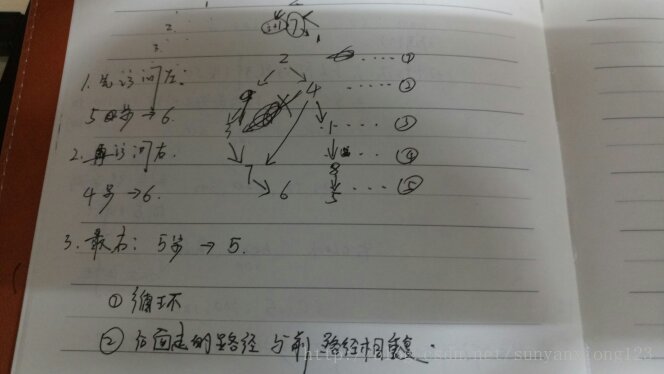 2.
3.
2 ①
1. 先访问左: 4 ②
3 1 ③
5步→6.
2. 再访问右. 8 ④
7
4步→6. 6 5 ⑤
3. 最右: 5步 → 5.
① 循环
② 后面走的路径 与前 路径相重复.
csdn.net/sunyanxiong123